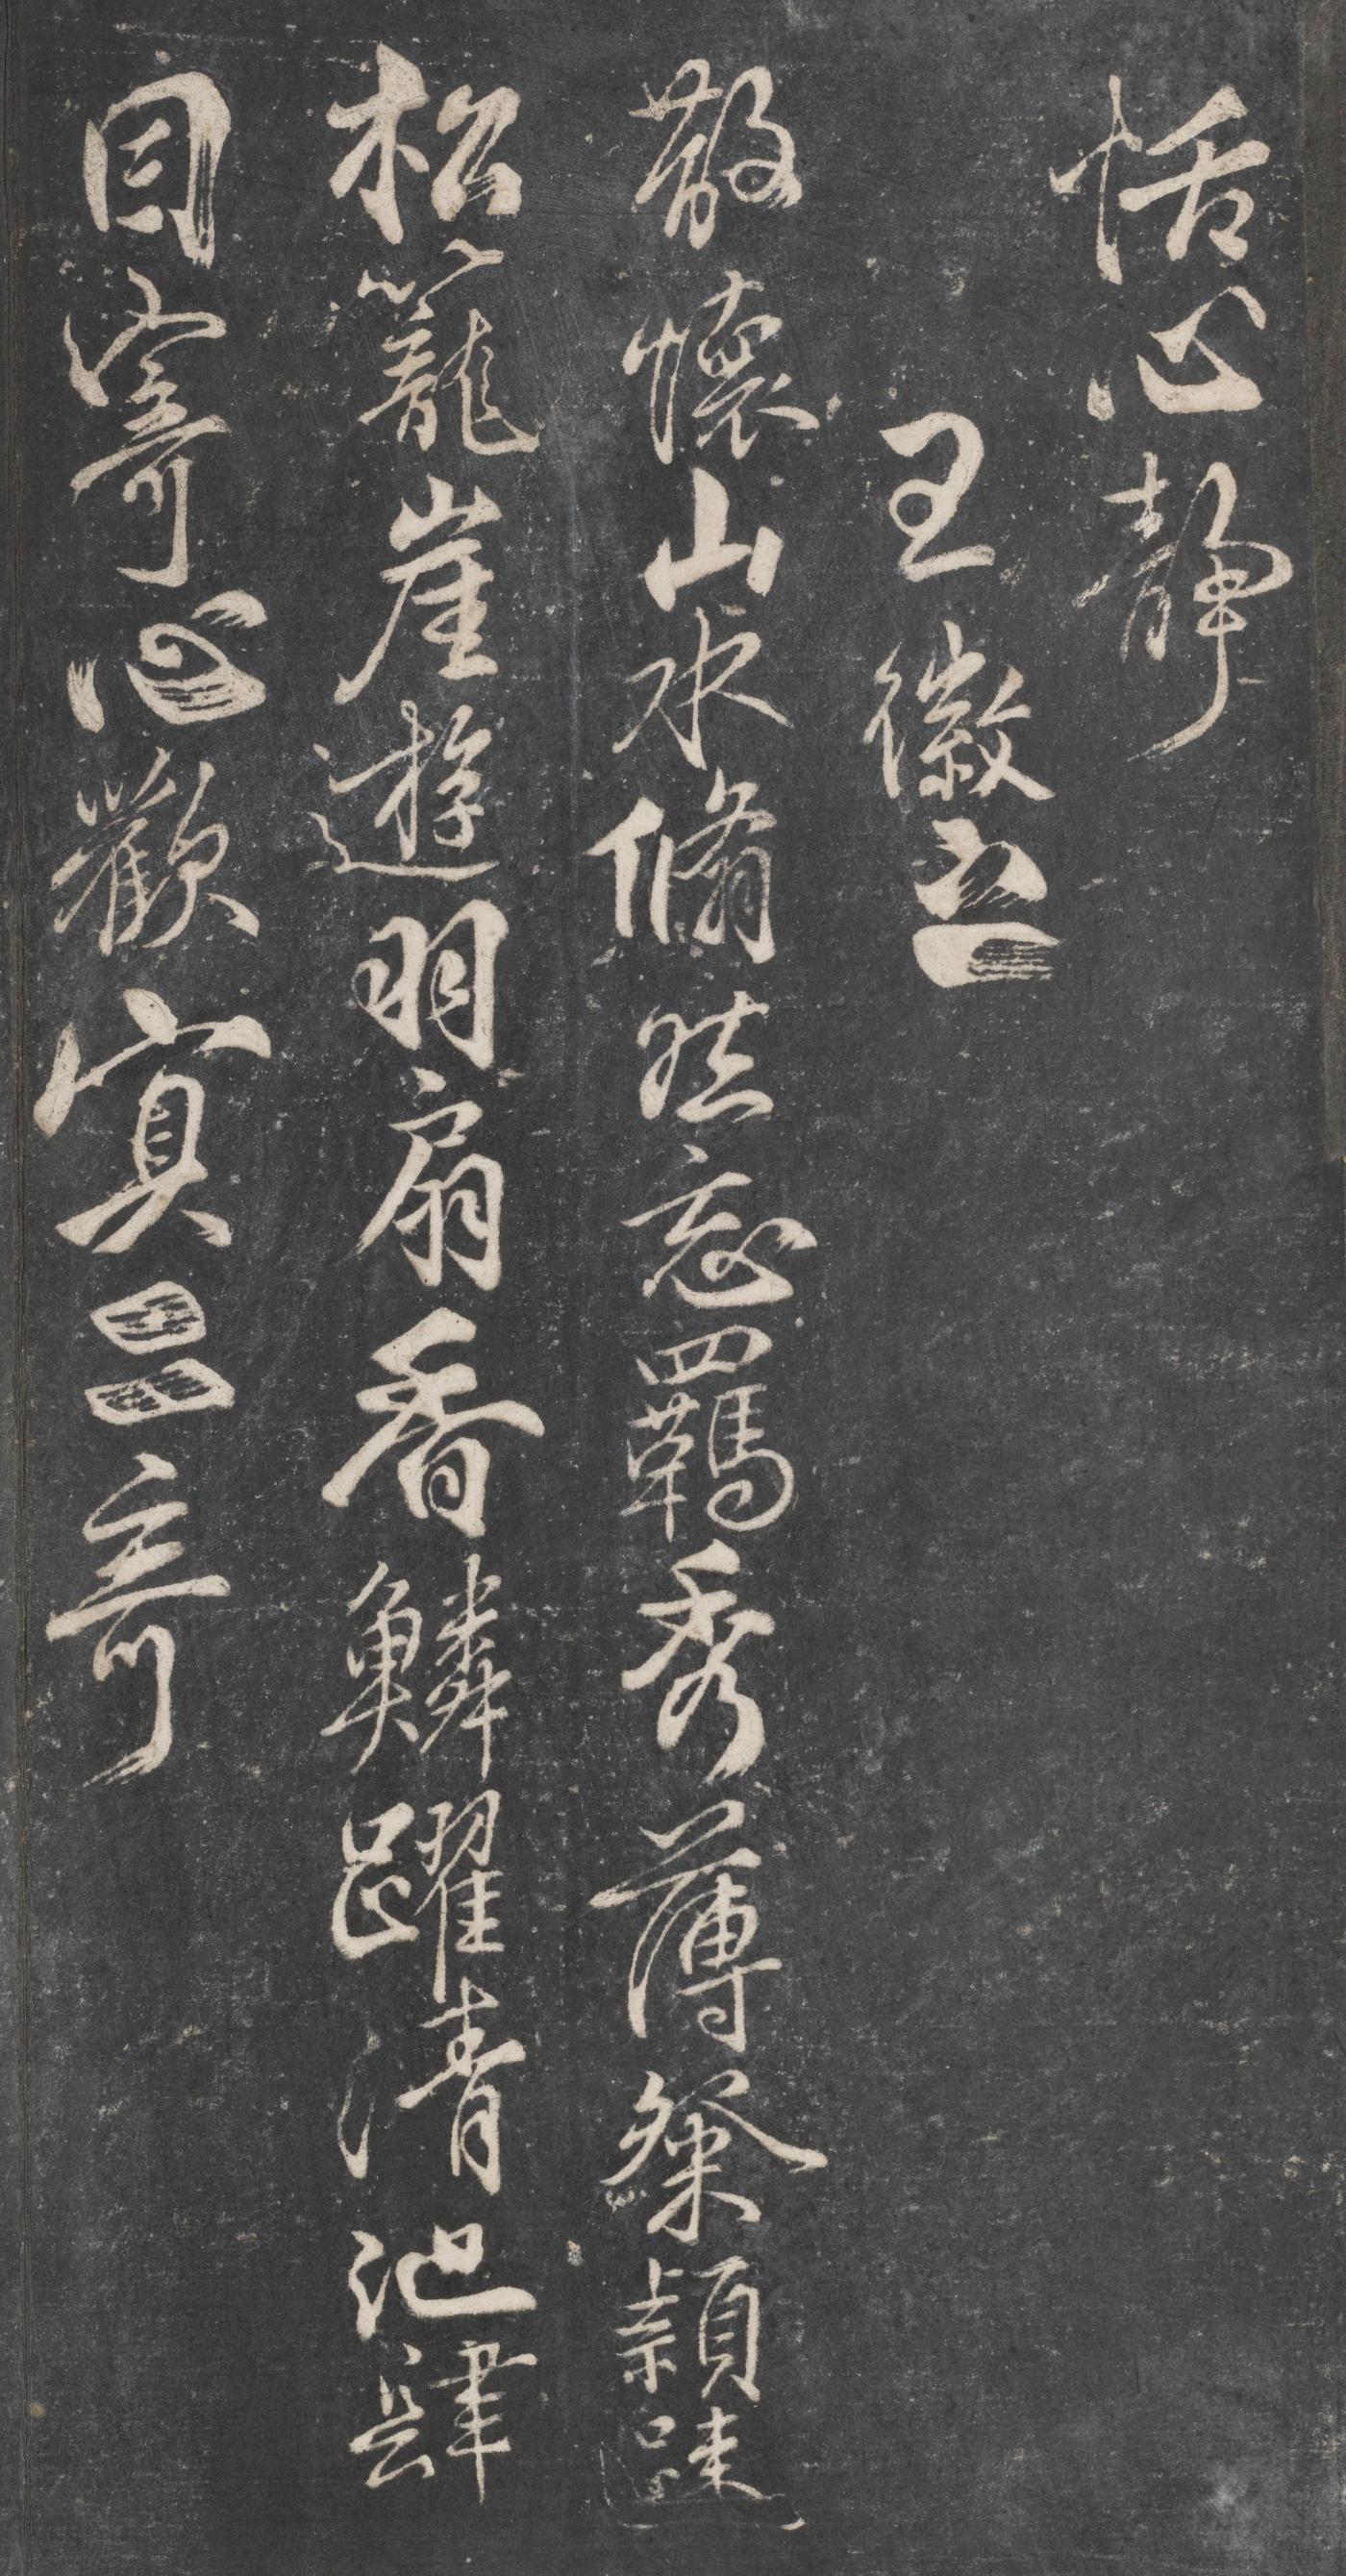 恬心靜
王徽之
散懷山水翛然忘羈秀薄粲穎踈
松籠崖遊羽扇香鱗躍清池肆
目寄心歡寘二奇